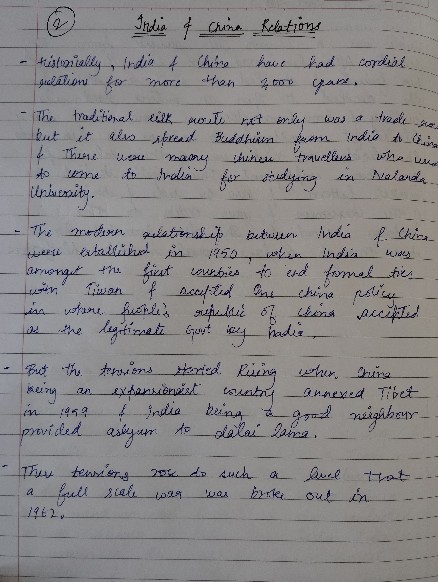 2 India & China Relations
- Historically, India & China have had cordial
relations for more than 2000 years.
- The traditional silk route not only was a trade
but it also spread Buddhism from India to China
& There were many chinese travellers who used
to come to India for studying in Nalanda
University.
- The modern relationship between India & China
were established in 1950, when India was
amongst the first countries to end formal ties
with Tiwan & accepted One china policy
in where people's republic of China accepted
as the legitimate Govt by India.
- But the tensions started Rising when China
being an expansionist country annexed Tibet
in 1959 & India being a good neighbour
provided asylum to dalai lama.
- These tensions rose to such a level that
a full scale war was broke out in
1962.